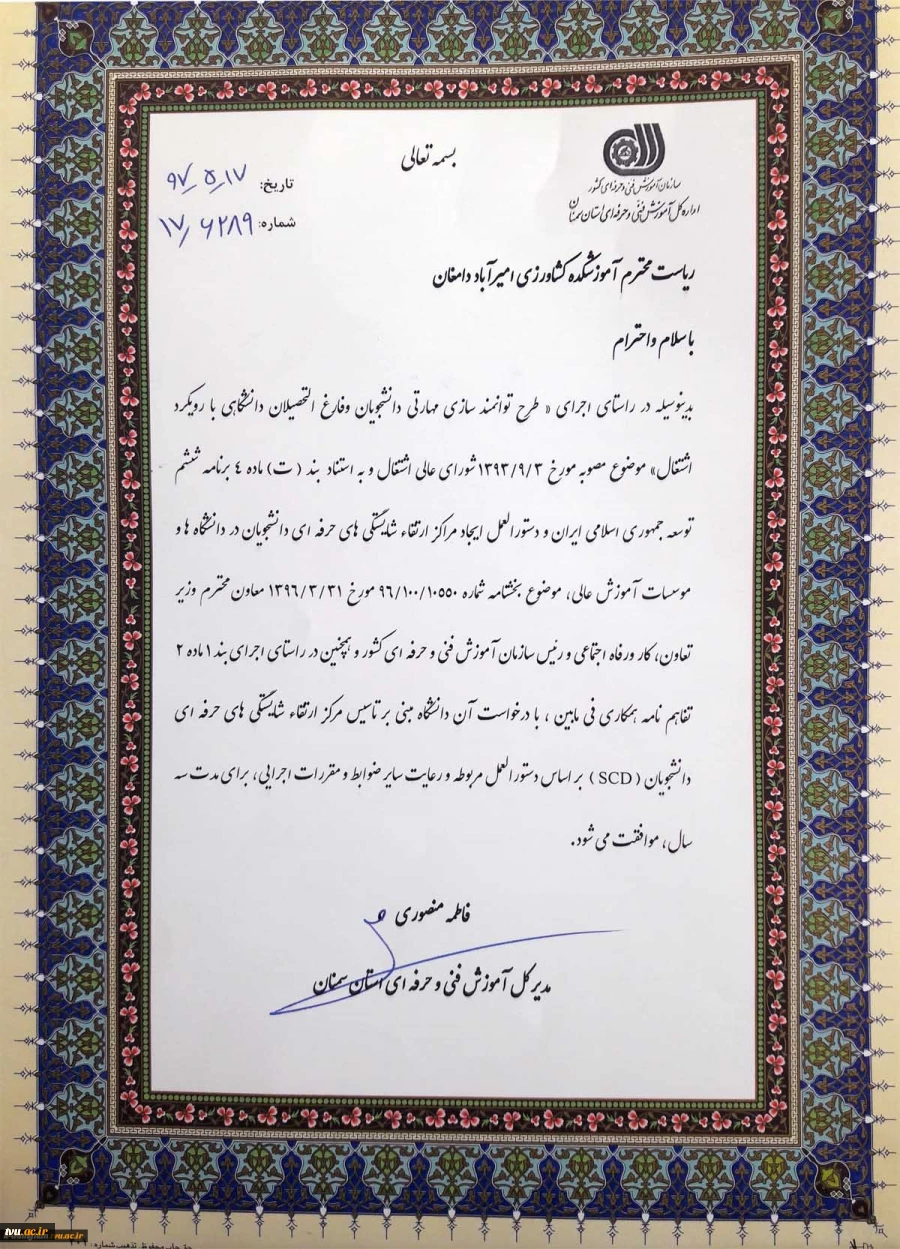 بسمه تعالی
سازمان آموزش فنی و حرفه ای کشور
اداره کل آموزش فنی و حرفه ای استان سمنان
تاریخ: ۹۷٫۵٫۱۷
شماره: ۱۷٫۶۲۸۹
ریاست محترم آموزشکده کشاورزی امیرآباد دامغان
با سلام و احترام
بدینوسیله در راستای اجرای « طرح توانمند سازی مهارتی دانشجویان وفارغ التحصیلان دانشگاهی با رویکرد
اشتغال» موضوع مصوبه مورخ ۱۳۹۳/۹/۳ شورای عالی اشتغال و به استناد بند (ت) ماده ٤ برنامه ششم
توسعه جمهوری اسلامی ایران و دستورالعمل ایجاد مراکز ارتقاء شایستگی های حرفه ای دانشجویان در دانشگاه ها و
موسسات آموزش عالی، موضوع بخشنامه شماره ۹٦/۱۰۰/۱۰۵۵۰ مورخ ۱۳۹٦/۳/۳۱ معاون محترم وزیر
تعاون، کار ورفاه اجتماعی و رئیس سازمان آموزش فنی و حرفه ای کشور و همچنین در راستای اجرای بند ۱ ماده ۲
تفاهم نامه همکاری فی مابین ، با درخواست آن دانشگاه مبنی بر تاسیس مرکز ارتقاء شایستگی های حرفه ای
دانشجویان ( SCD ) بر اساس دستورالعمل مربوطه و رعایت سایر ضوابط و مقررات اجرایی، برای مدت سه
سال، موافقت می شود.
فاطمه منصوری
مدیر کل آموزش فنی و حرفه ای استان سمنان
tvu.ac.ir